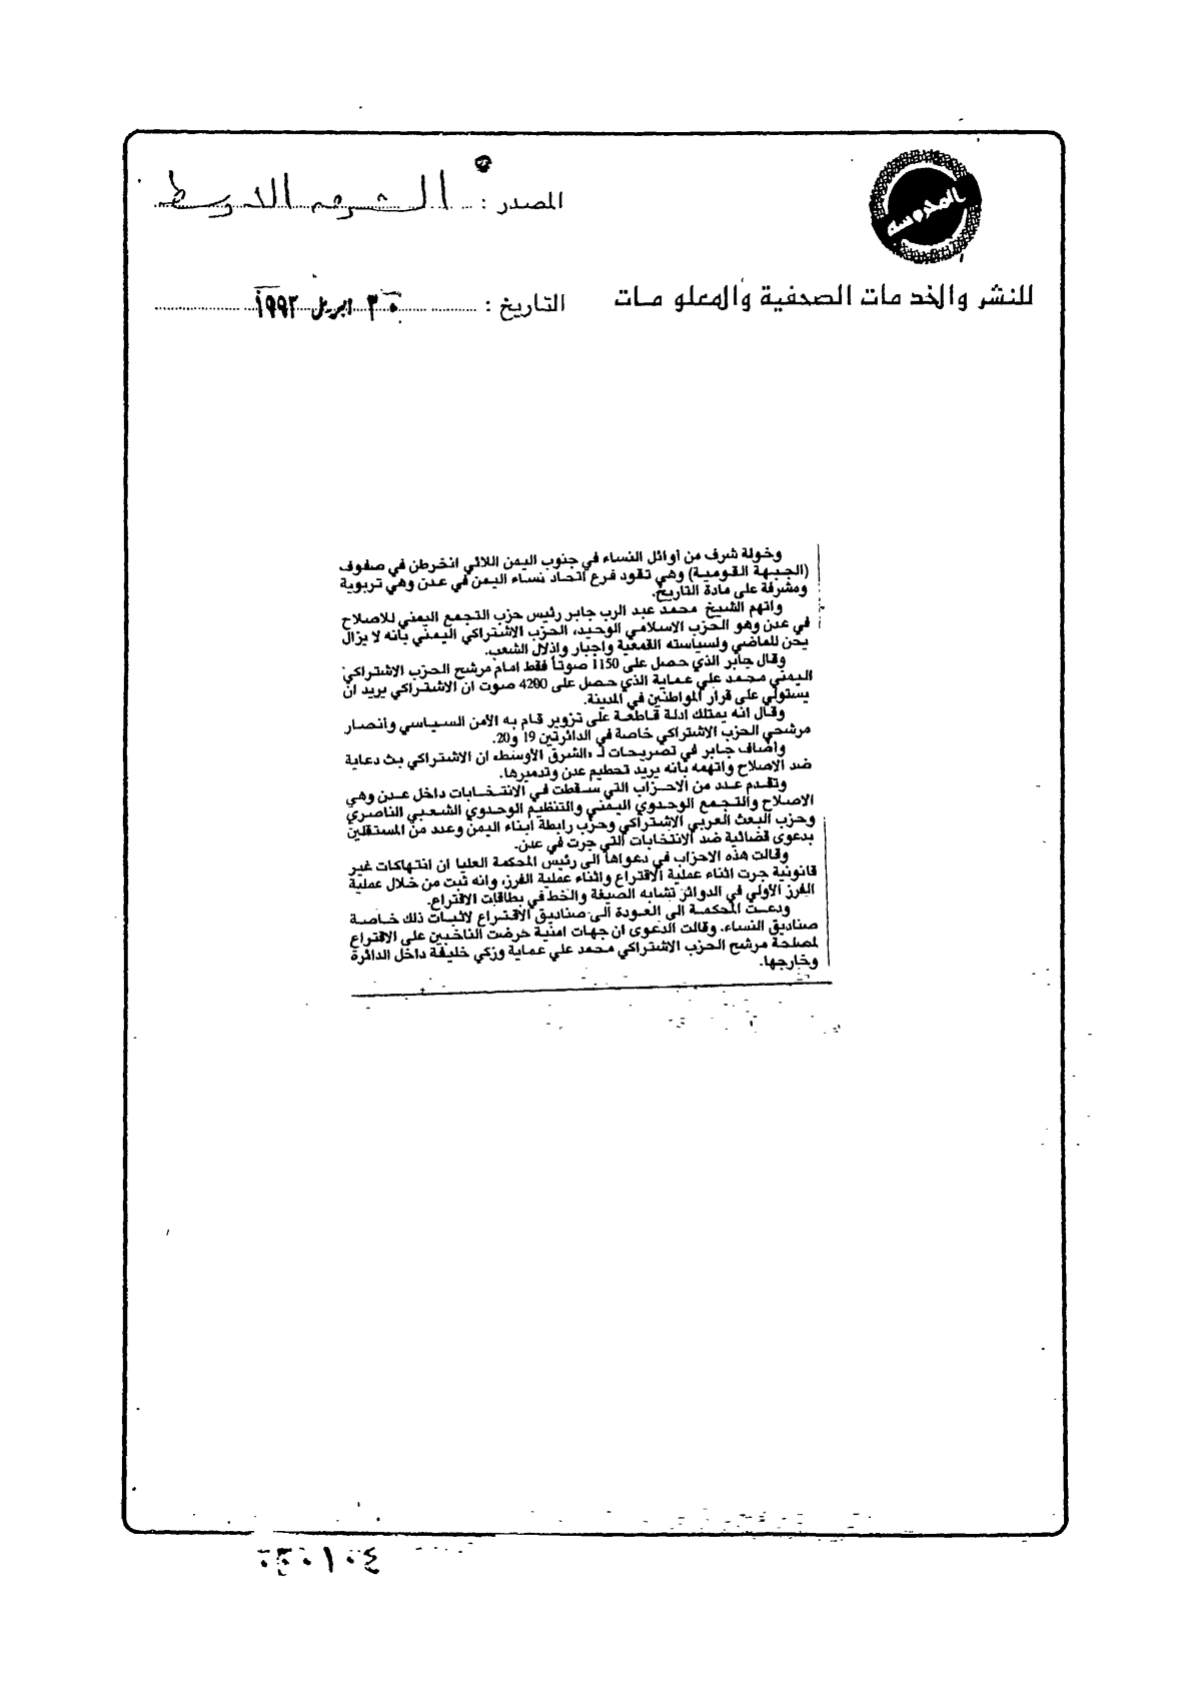 المصدر : الشرق الاوسط
للنشر والخدمات الصحفية والمعلومات
التاريخ : ٣٠ ابريل ١٩٩٣
وخولة شرف من أوائل النساء في جنوب اليمن اللائي انخرطن في صفوف
(الجبهة القومية) وهي تقود فرع اتحاد نساء اليمن في عدن وهي تربوية
ومشرفة على مادة التاريخ.
واتهم الشيخ محمد عبد الرب جابر رئيس حزب التجمع اليمني للاصلاح
في عدن وهو الحزب الاسلامي الوحيد، الحزب الاشتراكي اليمني بأنه لا يزال
يحن للماضي ولسياسته القمعية واجبار واذلال الشعب.
وقال جابر الذي حصل على 1150 صوتاً فقط امام مرشح الحزب الاشتراكي
اليمني محمد علي عماية الذي حصل على 4200 صوت ان الاشتراكي يريد ان
يستولي على قرار المواطنين في المدينة.
وقال انه يمتلك ادلة قاطعة على تزوير قام به الأمن السياسي وأنصار
مرشحي الحزب الاشتراكي خاصة في الدائرتين 19 و20.
وأضاف جابر في تصريحات لـ «الشرق الأوسط» ان الاشتراكي بث دعاية
ضد الاصلاح واتهمه بأنه يريد تحطيم عدن وتدميرها.
وتقدم عدد من الاحزاب التي سقطت في الانتخابات داخل عدن وهي
الاصلاح والتجمع الوحدوي اليمني والتنظيم الوحدوي الشعبي الناصري
وحزب البعث العربي الاشتراكي وحزب رابطة ابناء اليمن وعدد من المستقلين
بدعوى قضائية ضد الانتخابات التي جرت في عدن.
وقالت هذه الاحزاب في دعواها الى رئيس المحكمة العليا ان انتهاكات غير
قانونية جرت اثناء عملية الاقتراع واثناء عملية الفرز، وانه ثبت من خلال عملية
الفرز الأولي في الدوائر تشابه الصيغة والخط في بطاقات الاقتراع.
ودعت المحكمة الى العودة الى صناديق الاقتراع لاثبات ذلك خاصة
صناديق النساء. وقالت الدعوى ان جهات امنية حرضت الناخبين على الاقتراع
لمصلحة مرشح الحزب الاشتراكي محمد علي عماية وزكي خليفة داخل الدائرة
وخارجها.